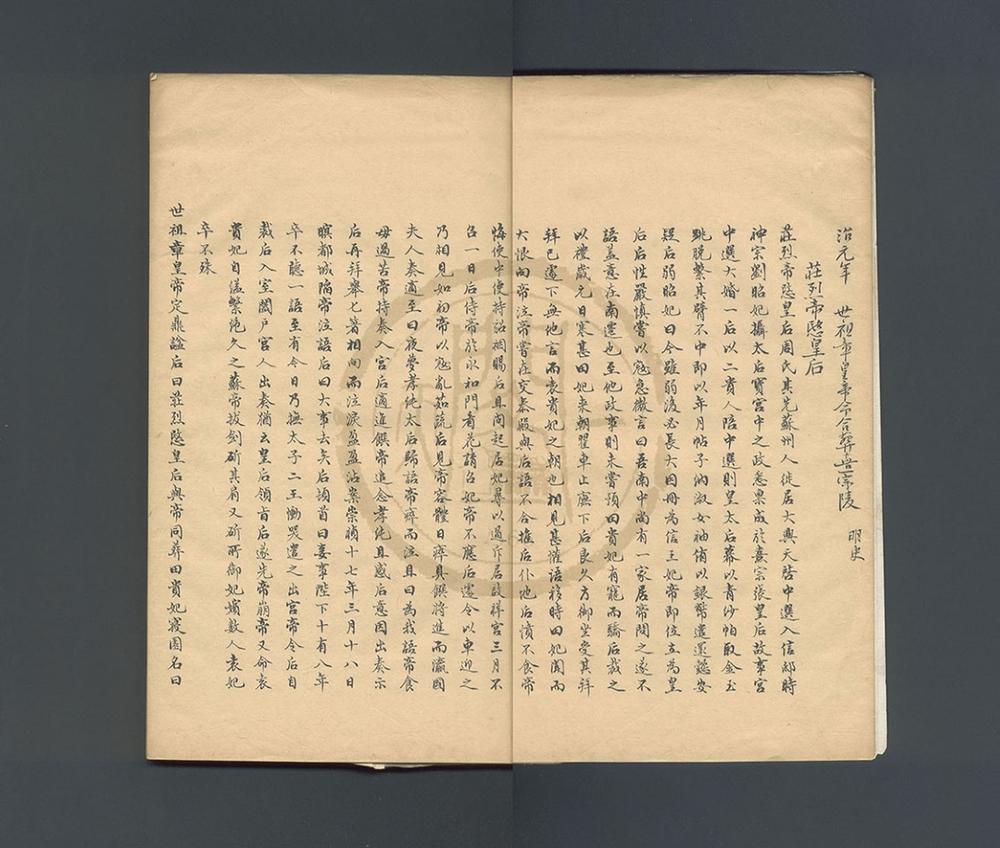 治元年　世祖章皇帝命合葬無崇陵　明史
莊烈帝愍皇后
莊烈帝愍皇后周氏其先蘇州人徙居大興天啓中選入信邸時
神宗劉昭妃攝太后寶宮中之政悉稟成於熹宗張皇后故事宮
中選大婚一后以二貴人陪中選則皇太后幕以青沙帕取金玉
跳脫繫其臂不中即以年月帖子納淑女袖侑以銀幣遣還懿安
疑后弱昭妃曰今雖弱後必長大因冊為信王妃帝即位立為皇
后后性嚴慎嘗以寇急微言曰吾南中尚有一家居帝問之遂不
語蓋意在南遷也至他政事則未嘗預田貴妃有寵而驕后裁之
以禮歲元日寒甚田妃來朝翟車止廡下后良久方御坐受其拜
拜已遽下無他言而袁貴妃之朝也相見甚懽語移時田妃聞而
大恨向帝泣帝嘗在交泰殿與后語不合推后仆地后憤不食帝
悔使中使持詔裀賜后且問起居妃尋以過斥居啟祥宮三月不
召一日后侍帝於永和門看花請召妃帝不應后遽令以車迎之
乃相見如初帝以寇亂茹蔬后見帝容體日瘁具饌將進而瀛國
夫人奏適至曰夜夢孝純太后歸語帝瘁而泣且曰為我語帝食
毋過苦帝持奏入宮后適進饌帝追念孝純且感后意因出奏示
后再拜舉匕著相向而泣淚盈盈沾案崇禎十七年三月十八日
暝都城陷帝泣語后曰大事去矣后頓首曰妾事陛下十有八年
卒不聽一語至有今日乃撫太子二王慟哭遣之出宮帝令后自
裁后入室闔户宮人出奏猶云皇后領旨后遂先帝崩帝又命袁
貴妃自縊繫絶久之蘇帝拔劍斫其肩又斫所御妃嬪數人袁妃
卒不殊
世祖章皇帝定鼎謚后曰莊烈愍皇后與帝同葬田貴妃寢園名曰